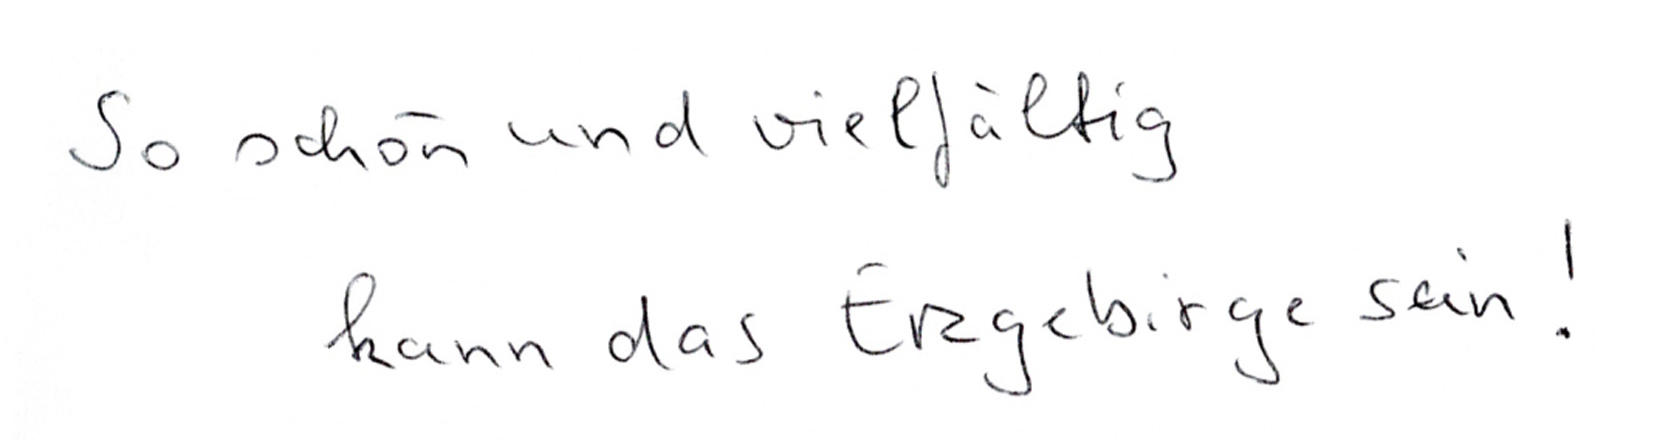 So schön und vielfältig
kann das Erzgebirge sein!